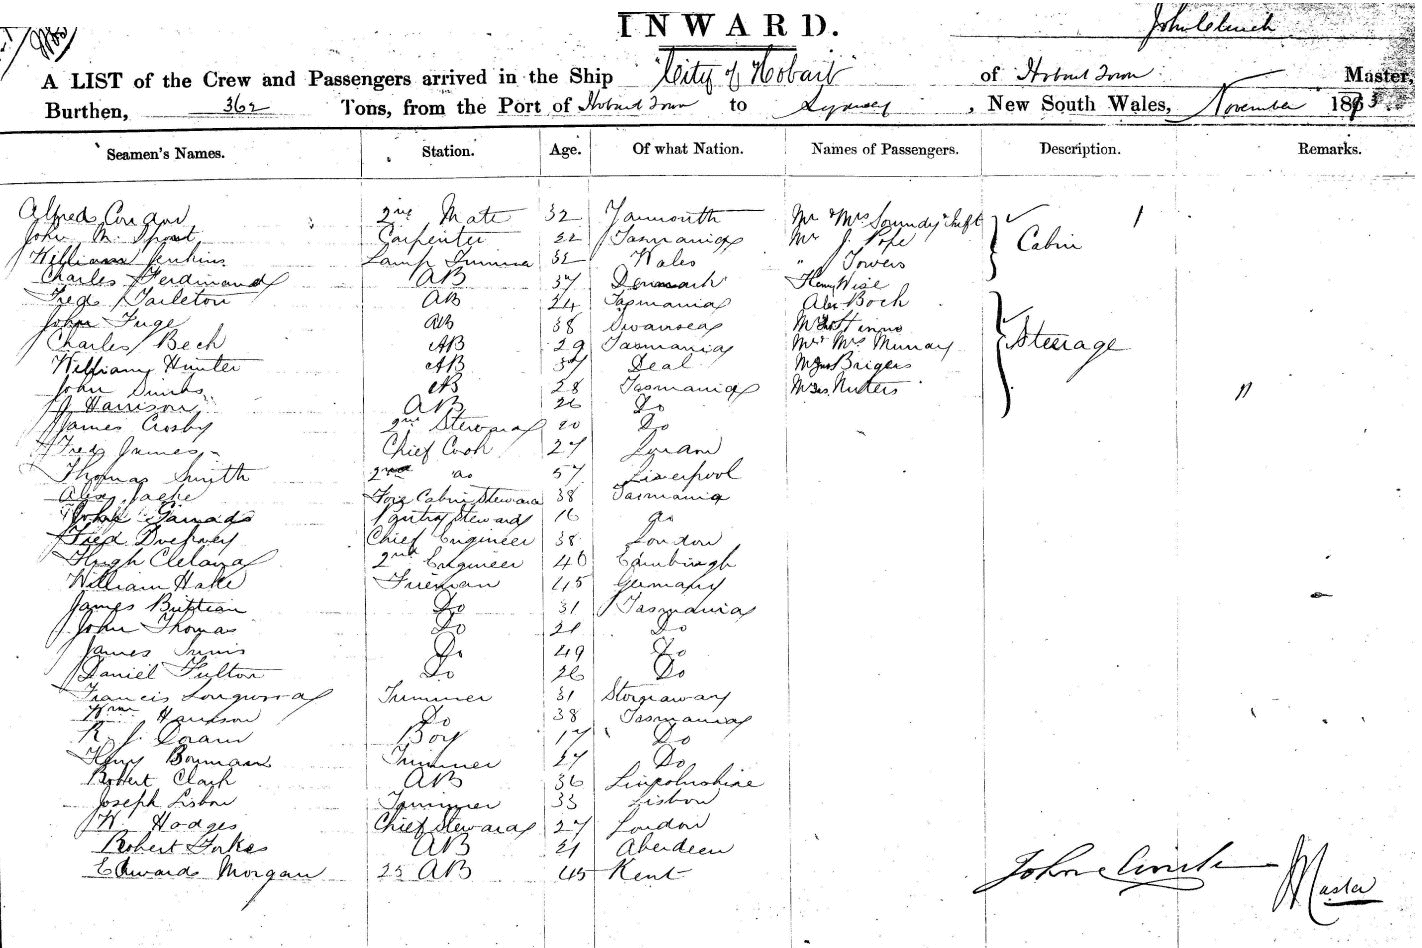 INWARD.
John Clinch
A LIST of the Crew and Passengers arrived in the Ship "City of Hobart" of Hobart Town Master,
Burthen, 362 Tons, from the Port of Hobart Town to Sydney, New South Wales, November 1873
Seamen's Names. Station. Age. Of what Nation. Names of Passengers. Description. Remarks.
Alfred 2nd Mate 32 Yarmouth Mr & Mrs
John M. Carpenter 22 Tasmania Mr J. Pope Cabin
William Jenkins Lamp Trimmer 32 Wales " Towers
Charles Ferdinand AB 37 Denmark Henry Wise
Fred Tarleton AB 24 Tasmania Alex Boch
John Fuge AB 38 Swansea
Charles Bech AB 29 Tasmania Mr & Mrs Murray Steerage
William Hunter AB 37 Deal Brigers
John AB 28 Tasmania
J Harrison AB 26 Do
James Crosby 2nd Steward 20 Do
Fred James Chief Cook 27
Thomas Smith 2nd do 57 Liverpool
Alex Fore Cabin Steward 38 Tasmania
John Pantry Steward 16 do
Fred Chief Engineer 38 London
Hugh Cleland 2nd Engineer 40 Edinburgh
William Hake Fireman 45 Germany
James Do 31 Tasmania
John Thomas Do 21 Do
James Do 49 Do
Daniel Fulton Do 26 Do
Francis Trimmer 31 Stornaway
Wm Do 38 Tasmania
R. J. Boy 17 Do
Henry Bowman Trimmer 27 Do
Robert Clark AB 36 Lincolnshire
Joseph Lisbon Trimmer 33 Lisbon
W. Hodges Chief Steward 27 London
Robert Forbes AB 21 Aberdeen
Edward Morgan 25 AB 45 Kent
John Clinch Master